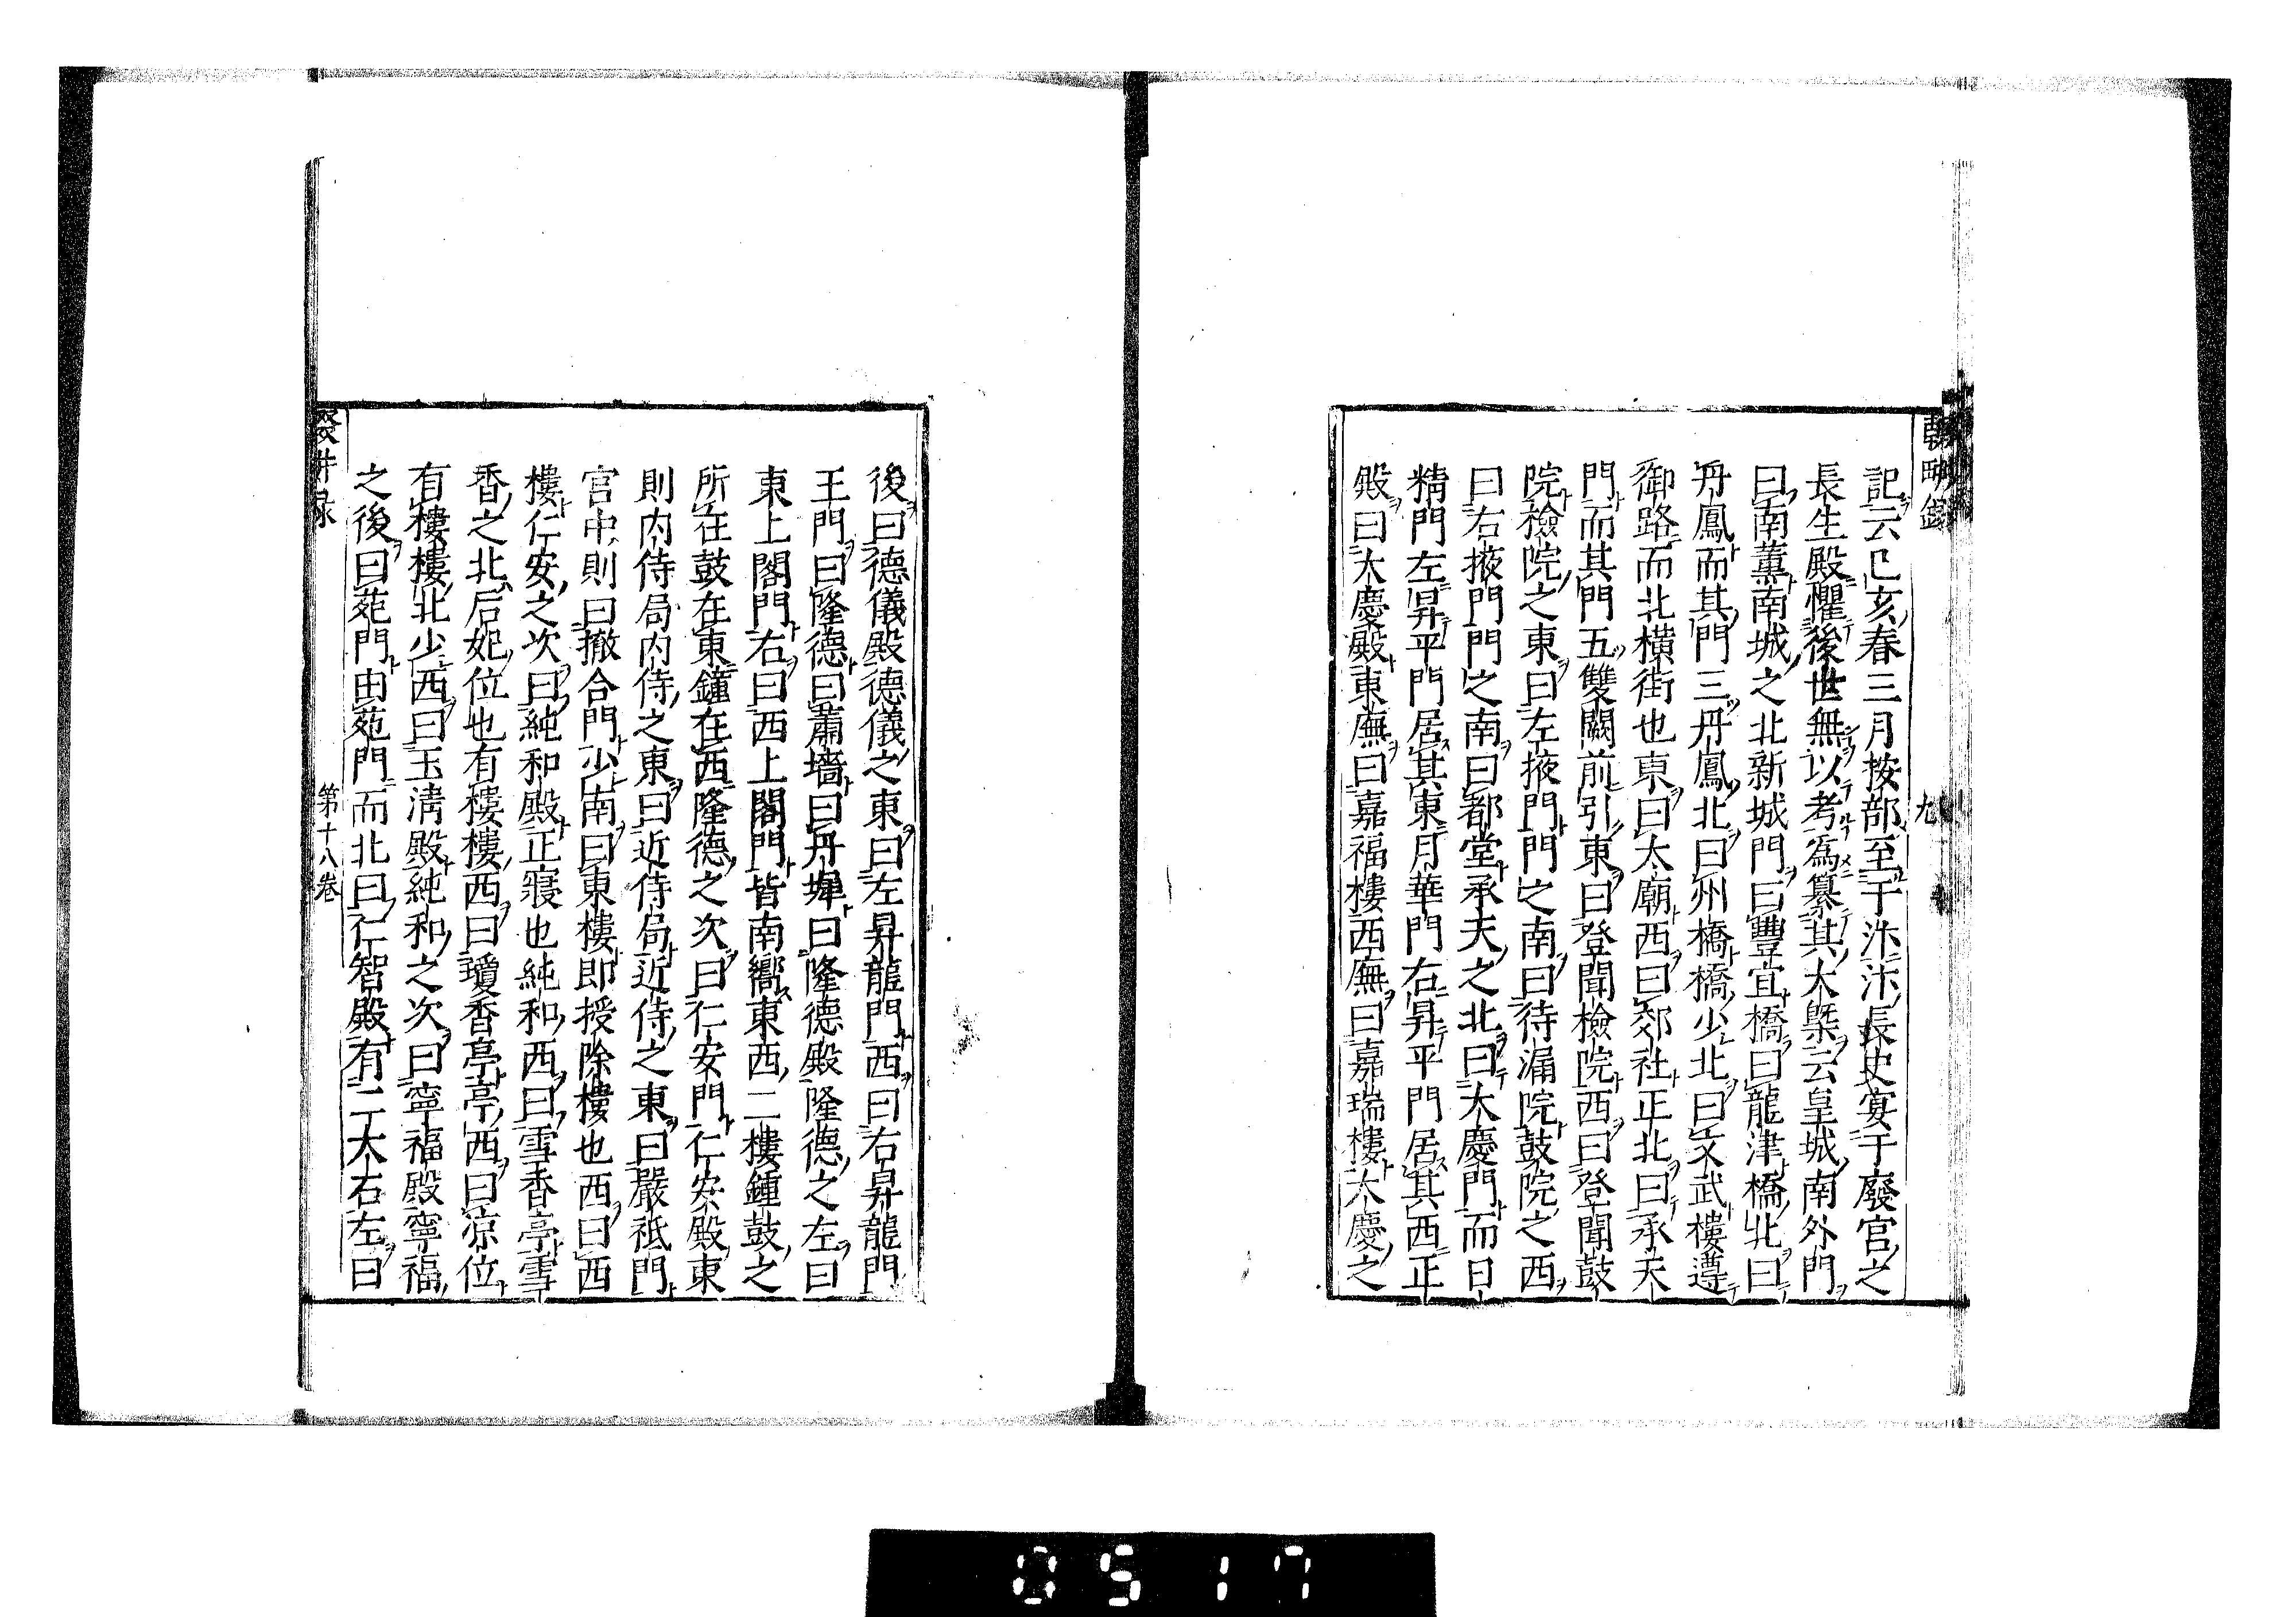 九
記云己亥春三月按部至于汴汴長史宴于廢宮之
長生殿懼後世無以考為纂其大槩云皇城南外門
曰南薫南城之北新城門曰豐宜橋曰龍津橋北曰
丹鳳而其門三丹鳳北曰州橋橋少北曰文武樓遵
御路而北橫街也東曰太廟西曰郊社正北曰承天
門而其門五雙闕前引東曰登聞檢院西曰登聞鼓
院檢院之東曰左掖門門之南曰待漏院鼓院之西
曰右掖門門之南曰都堂承天之北曰大慶門而日
精門左昇平門居其東月華門右昇平門居其西正
殿曰大慶殿東廡曰嘉福樓西廡曰嘉瑞樓大慶之
後曰德儀殿德儀之東曰左昇龍門西曰右昇龍門
王門曰隆德曰蕭墻曰丹墀曰隆德殿隆德之左曰
東上閣門右曰西上閣門皆南嚮東西二樓鍾鼓之
所在鼓在東鐘在西隆德之次曰仁安門仁安殿東
則内侍局内侍之東曰近侍局近侍之東曰嚴祗門
官中則曰撤合門少南曰東樓即授除樓也西曰西
樓仁安之次曰純和殿正寢也純和西曰雪香亭雪
香之北后妃位也有樓樓西曰瓊香亭亭西曰凉位
有樓樓北少西曰玉淸殿純和之次曰寧福殿寧福
之後曰苑門由苑門而北曰仁智殿有二太石左曰
第十八卷